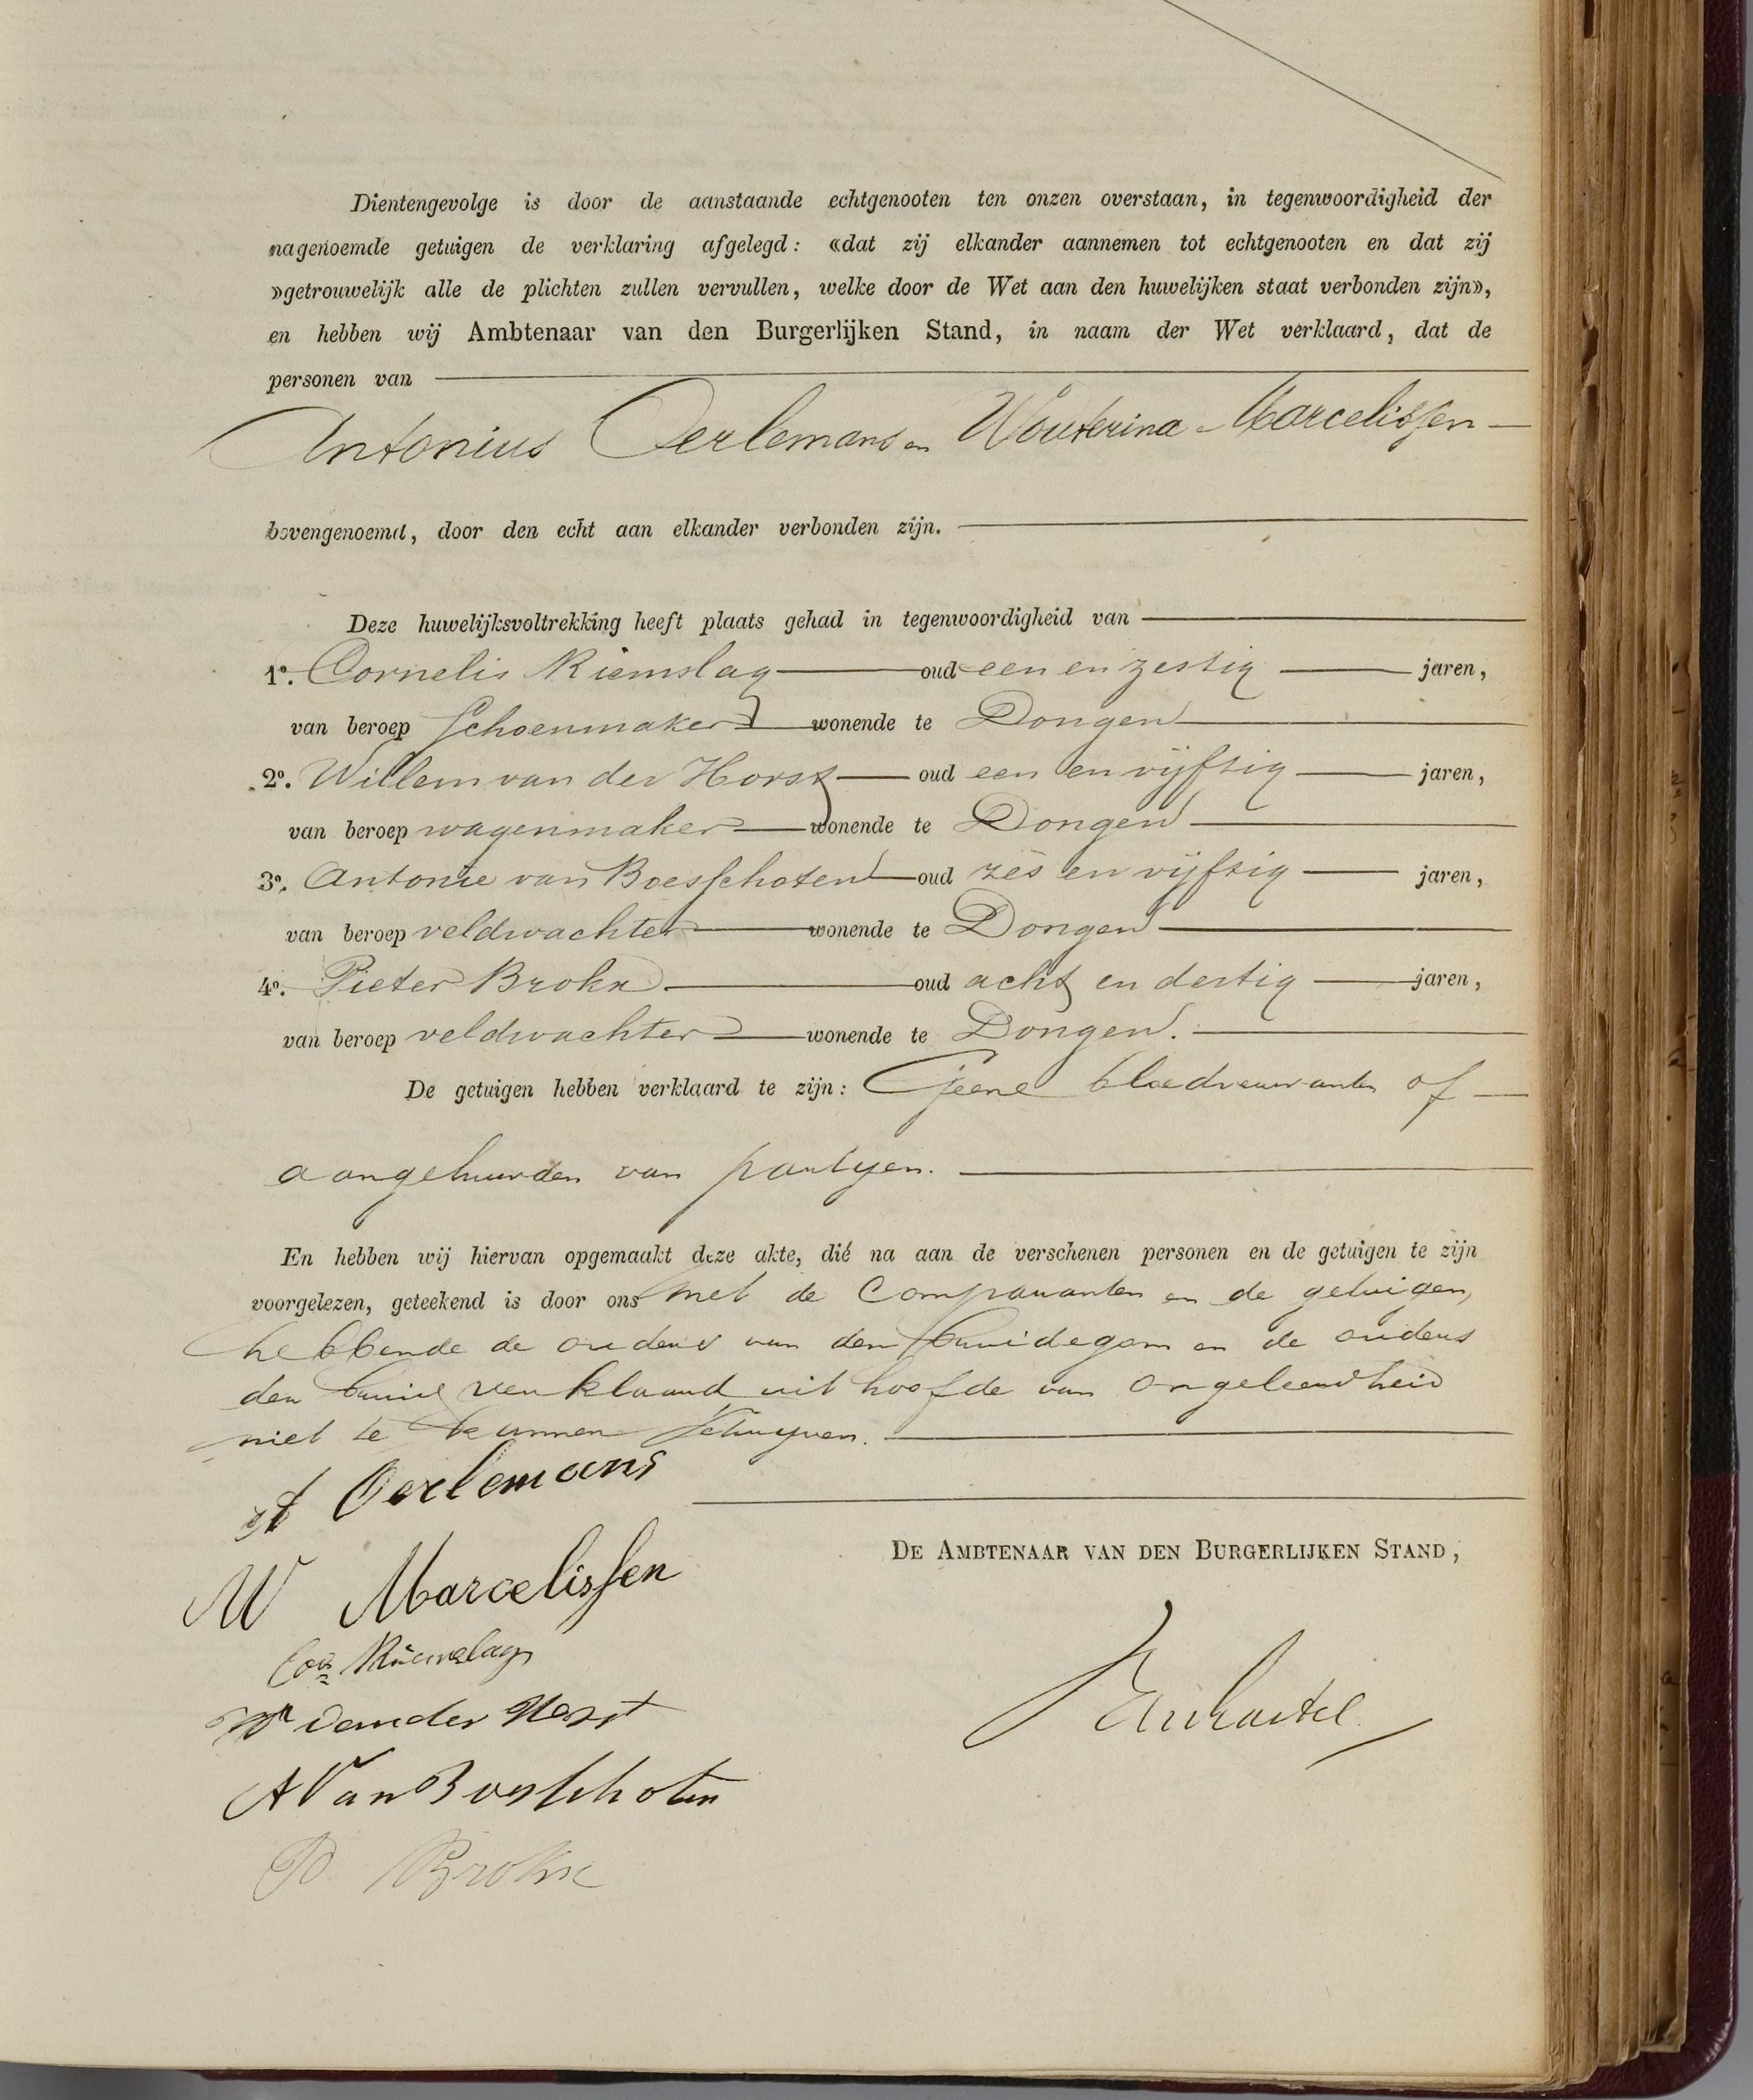 Dientengevolge is door de aanstaande echtgenooten ten onzen overstaan, in tegenwoordigheid der
nagenoemde getuigen de verklaring afgelegd: «dat zij elkander aannemen tot echtgenooten en dat zij
»getrouwelijk alle de plichten zullen vervullen, welke door de Wet aan den huwelijken staat verbonden zijn»,
en hebben wij Ambtenaar van den Burgerlijken Stand, in naam der Wet verklaard, dat de
personen van
Antonius Oerlemans en Wouterina Marcelissen
bovengenoemd, door den echt aan elkander verbonden zijn.
Deze huwelijksvoltrekking heeft plaats gehad in tegenwoordigheid van
1º. Cornelis Riemslag oud een en zestig jaren,
van beroep Schoenmaker wonende te Dongen
2º. Willem van der Horst oud een en vijftig jaren,
van beroep wagenmaker wonende te Dongen
3º. Antonie van Boesschoten oud zes en vijftig jaren,
van beroep veldwachter wonende te Dongen
4º. Pieter Brokx oud acht en dertig jaren,
van beroep veldwachter wonende te Dongen.
De getuigen hebben verklaard te zijn: Geene bloedverwanten of
aangehuwden van partyen.
En hebben wij hiervan opgemaakt deze akte, die na aan de verschenen personen en de getuigen te zijn
voorgelezen, geteekend is door ons met de Comparanten en de getuigen,
hebbende de ouders van den bruidegom en de ouders
der bruid verklaard uit hoofde van ongeleerdheid
niet te kunnen schryven.
A Oerlemans
DE AMBTENAAR VAN DEN BURGERLIJKEN STAND,
W Marcelissen
Cors Riemslag
Wm van der Horst
A Van Boesschoten
P Brokx